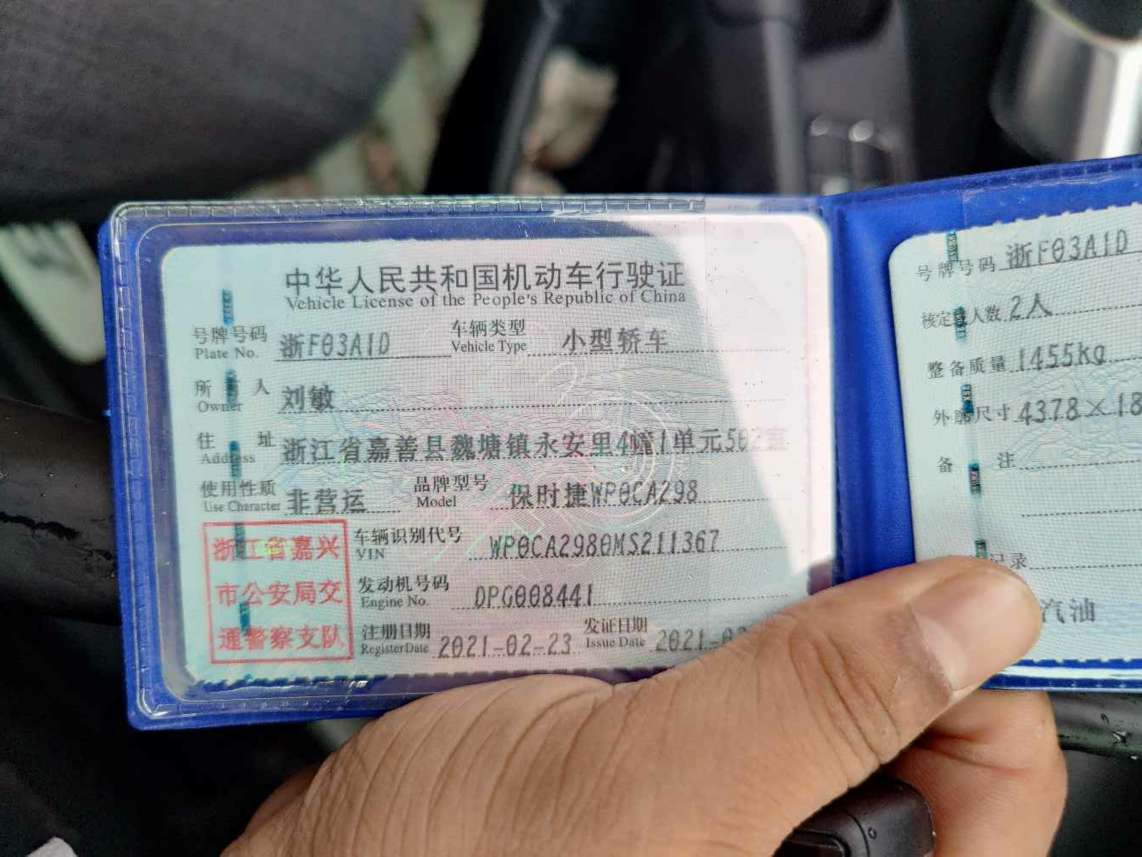 中华人民共和国机动车行驶证
Vehicle License of the People's Republic of China
号牌号码 浙F03A1D 车辆类型 小型轿车
Plate No. Vehicle Type
所有人 刘敏
Owner
住址 浙江省嘉善县魏塘镇永安里4幢1单元502室
Address
使用性质 非营运 品牌型号 保时捷WP0CA298
Use Character Model
浙江省嘉兴
市公安局交
通警察支队
车辆识别代号 WP0CA2980MS211367
VIN
发动机号码 DPG008441
Engine No.
注册日期 2021-02-23 发证日期 2021-02
Register Date Issue Date
号牌号码 浙F03A1D
核定载人数 2人
整备质量 1455kg
外廓尺寸 4378×18
备注
记录
汽油